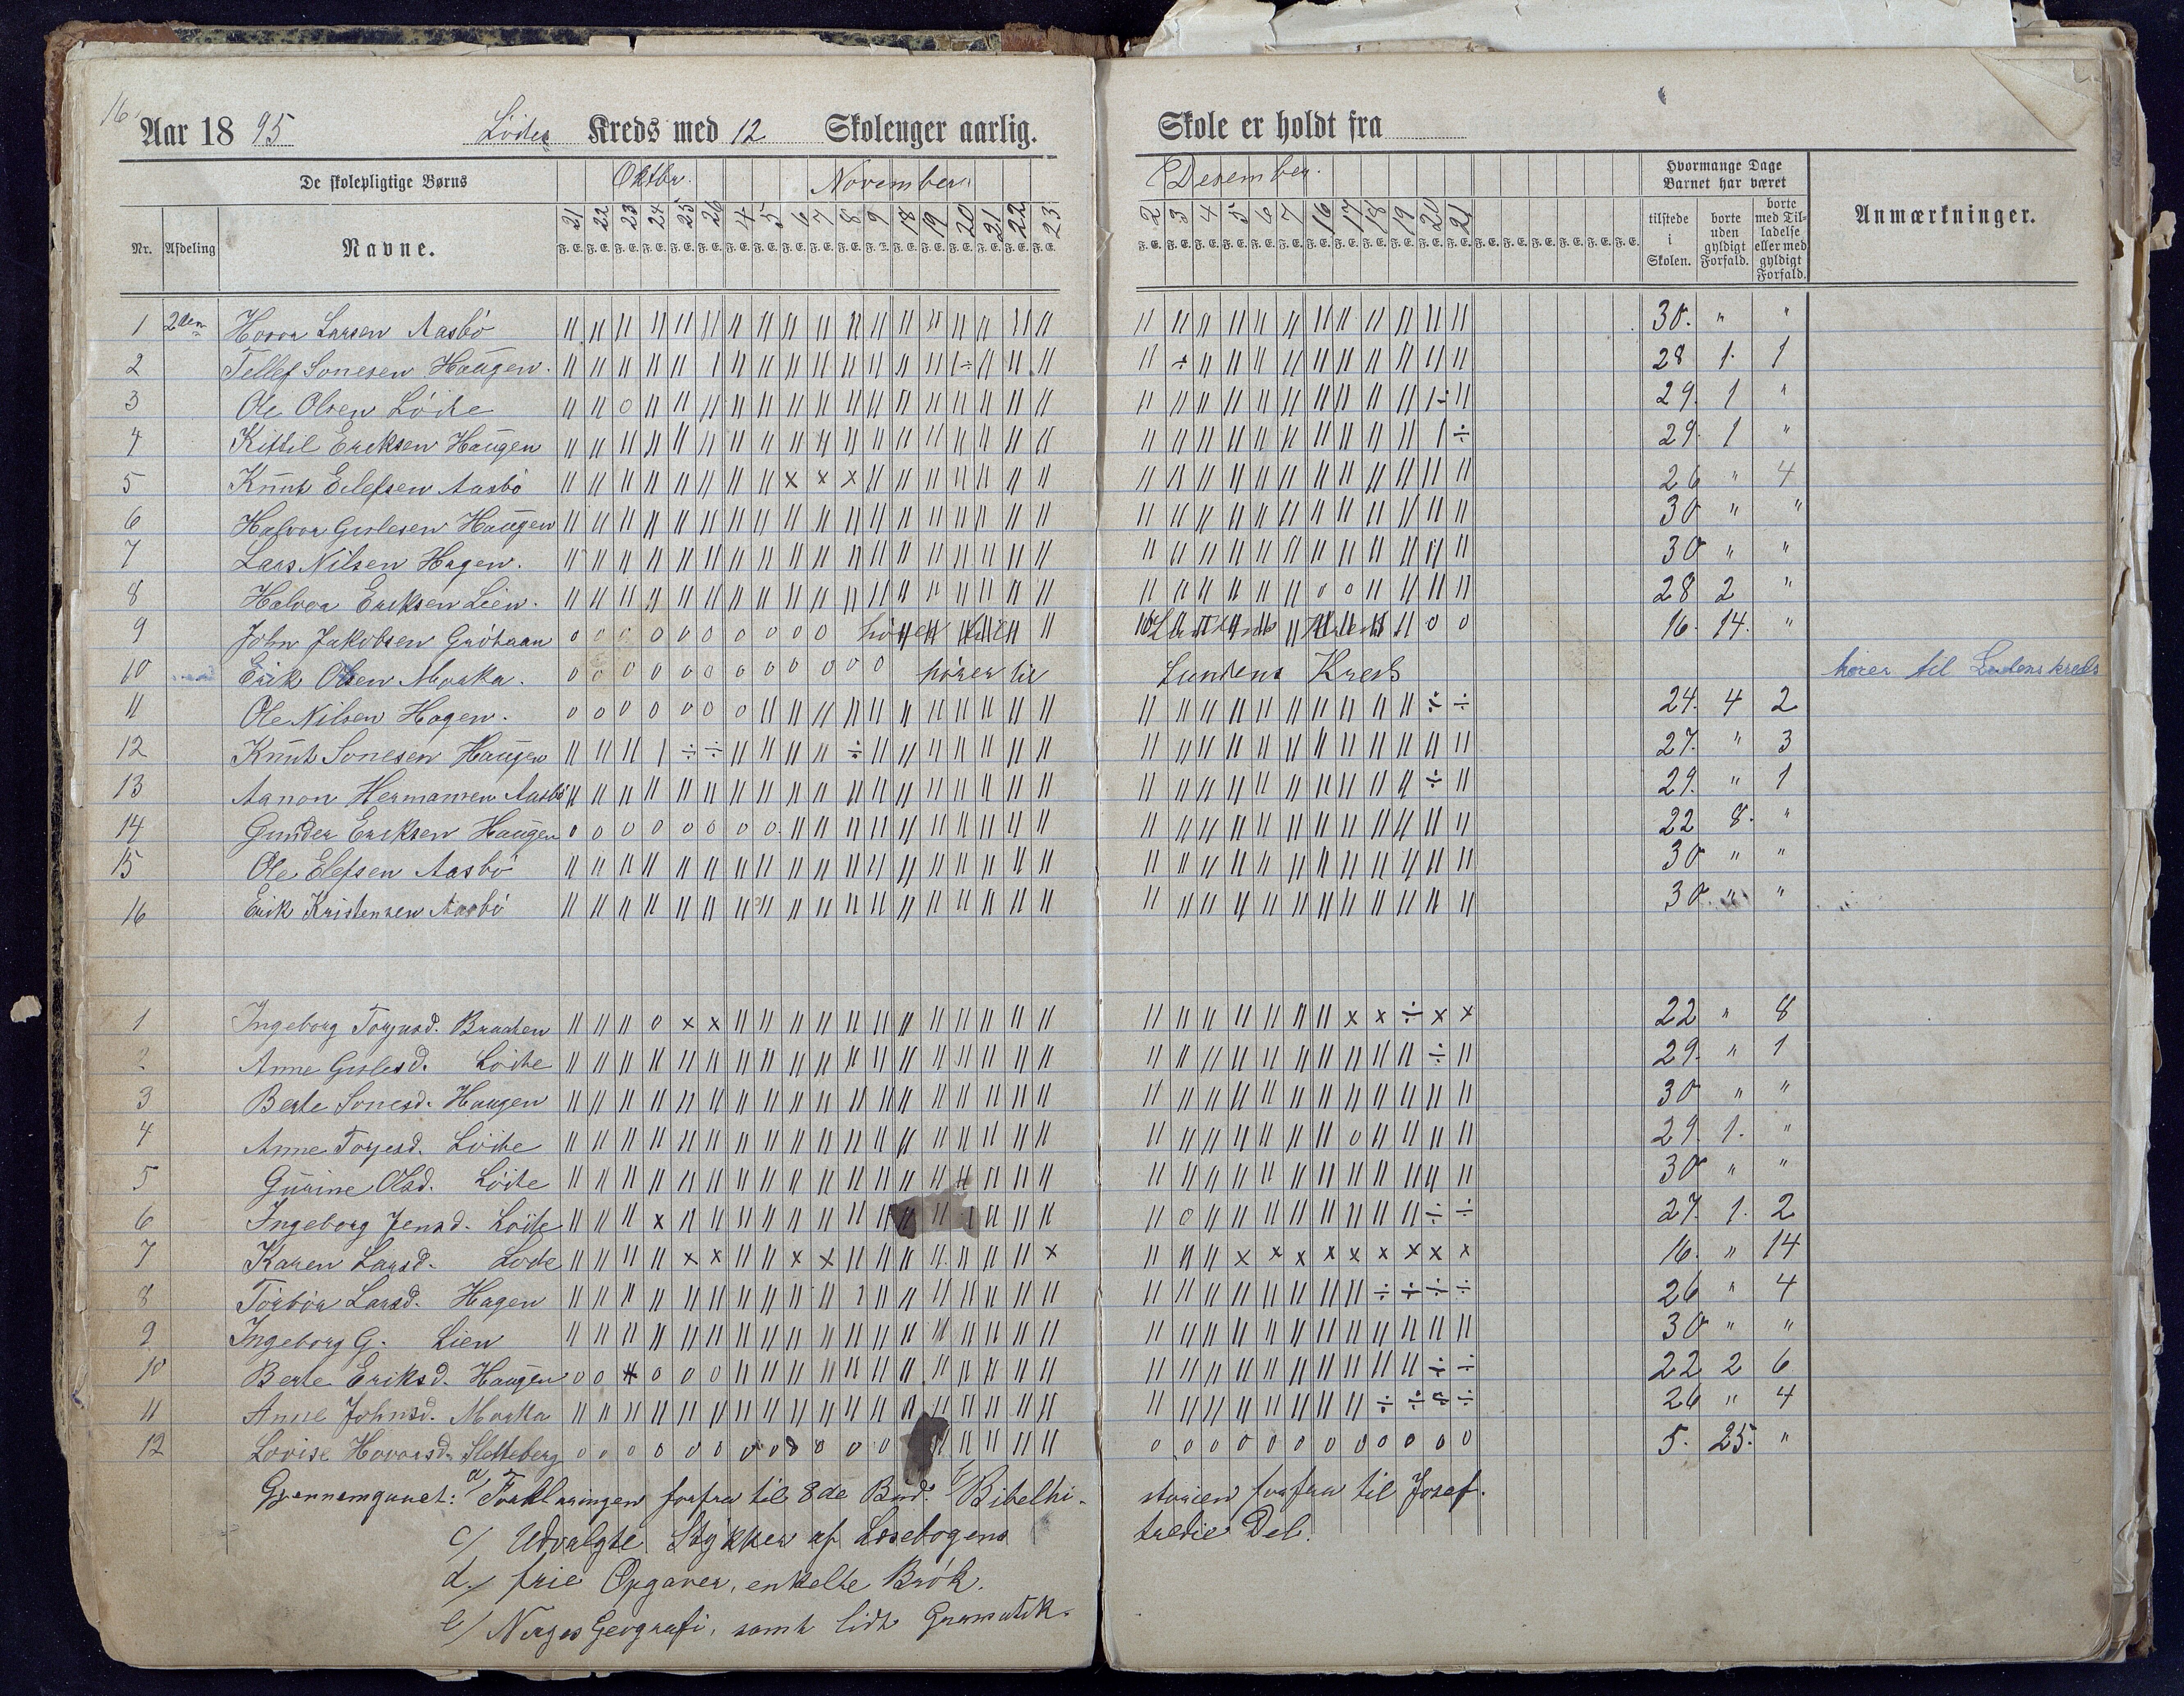 16
Aar 18 95 Löite Kreds med 12 Skoleuger aarlig. Skole er holdt fra
De skolepligtige Børns Oktbr. November. Desember. Hvormange Dage Barnet har været
Nr. Afdeling Navne. 21 22 23 24 25 26 4 5 6 7 8 9 18 19 20 21 22 23 2 3 4 5 6 7 16 17 18 19 20 21 tilstede i Skolen. borte uden gyldigt Forfald. borte med Tilladelse eller med gyldigt Forfald. Anmærkninger.
F. E.
1 2den Larsen Aasbö 30. " "
2 Tellef Sonesen Haugen. 28 1. 1
3 Ole Olsen Löite 29. 1 "
4 Kittil Eriksen Haugen 29. 1 "
5 Knut Eilefsen Aasbö 26 " 4
6 Halvor Gislesen Haugen 30 " "
7 Lars Nilsen Hagen. 30 " "
8 Halvor Eriksen Lien. 28 2 "
9 John Jakobsen 16. 14. "
10 Erik Olsen Morka. hörer til Lundens Kreds hörer til Lundens kreds
11 Ole Nilsen Hagen. 24. 4 2
12 Knut Sonesen Haugen 27. " 3
13 Aanon Hermansen Aasbö 29. " 1
14 Gunder Eriksen Haugen 22 8. "
15 Ole Elefsen Aasbö 30 " "
16 Erik Kristensen Aasbö 30. " "
1 Ingeborg Torjusd. Braaten 22 " 8
2 Anne Gislesd. Löite 29. " 1
3 Berte Sonesd. Haugen 30 " "
4 Anne Torjesd. Löite 29. 1. "
5 Gurine Olsd. Löite 30 " "
6 Ingeborg Jensd. Löite 27. 1. 2
7 Karen Larsd. Löite 16. " 14
8 Torbör Larsd. Hagen 26 " 4
9 Ingeborg G. Lien 30 " "
10 Berte Eriksd. Haugen 22 2 6
11 Anne Johnsd. Morka 26 " 4
12 Lovise Hovorsd. Sletteberg 5. 25. "
Gjennemgaaet: a/ Forklaringen forfra til 8de Bud. b/ Bibelhistorien forfra til Josef.
c/ Udvalgte Stykker af Læsebogens tredie Del.
d./ frie Opgaver, enkelte Brök.
e/ Norges Geografi, samt lidt Gramatik.